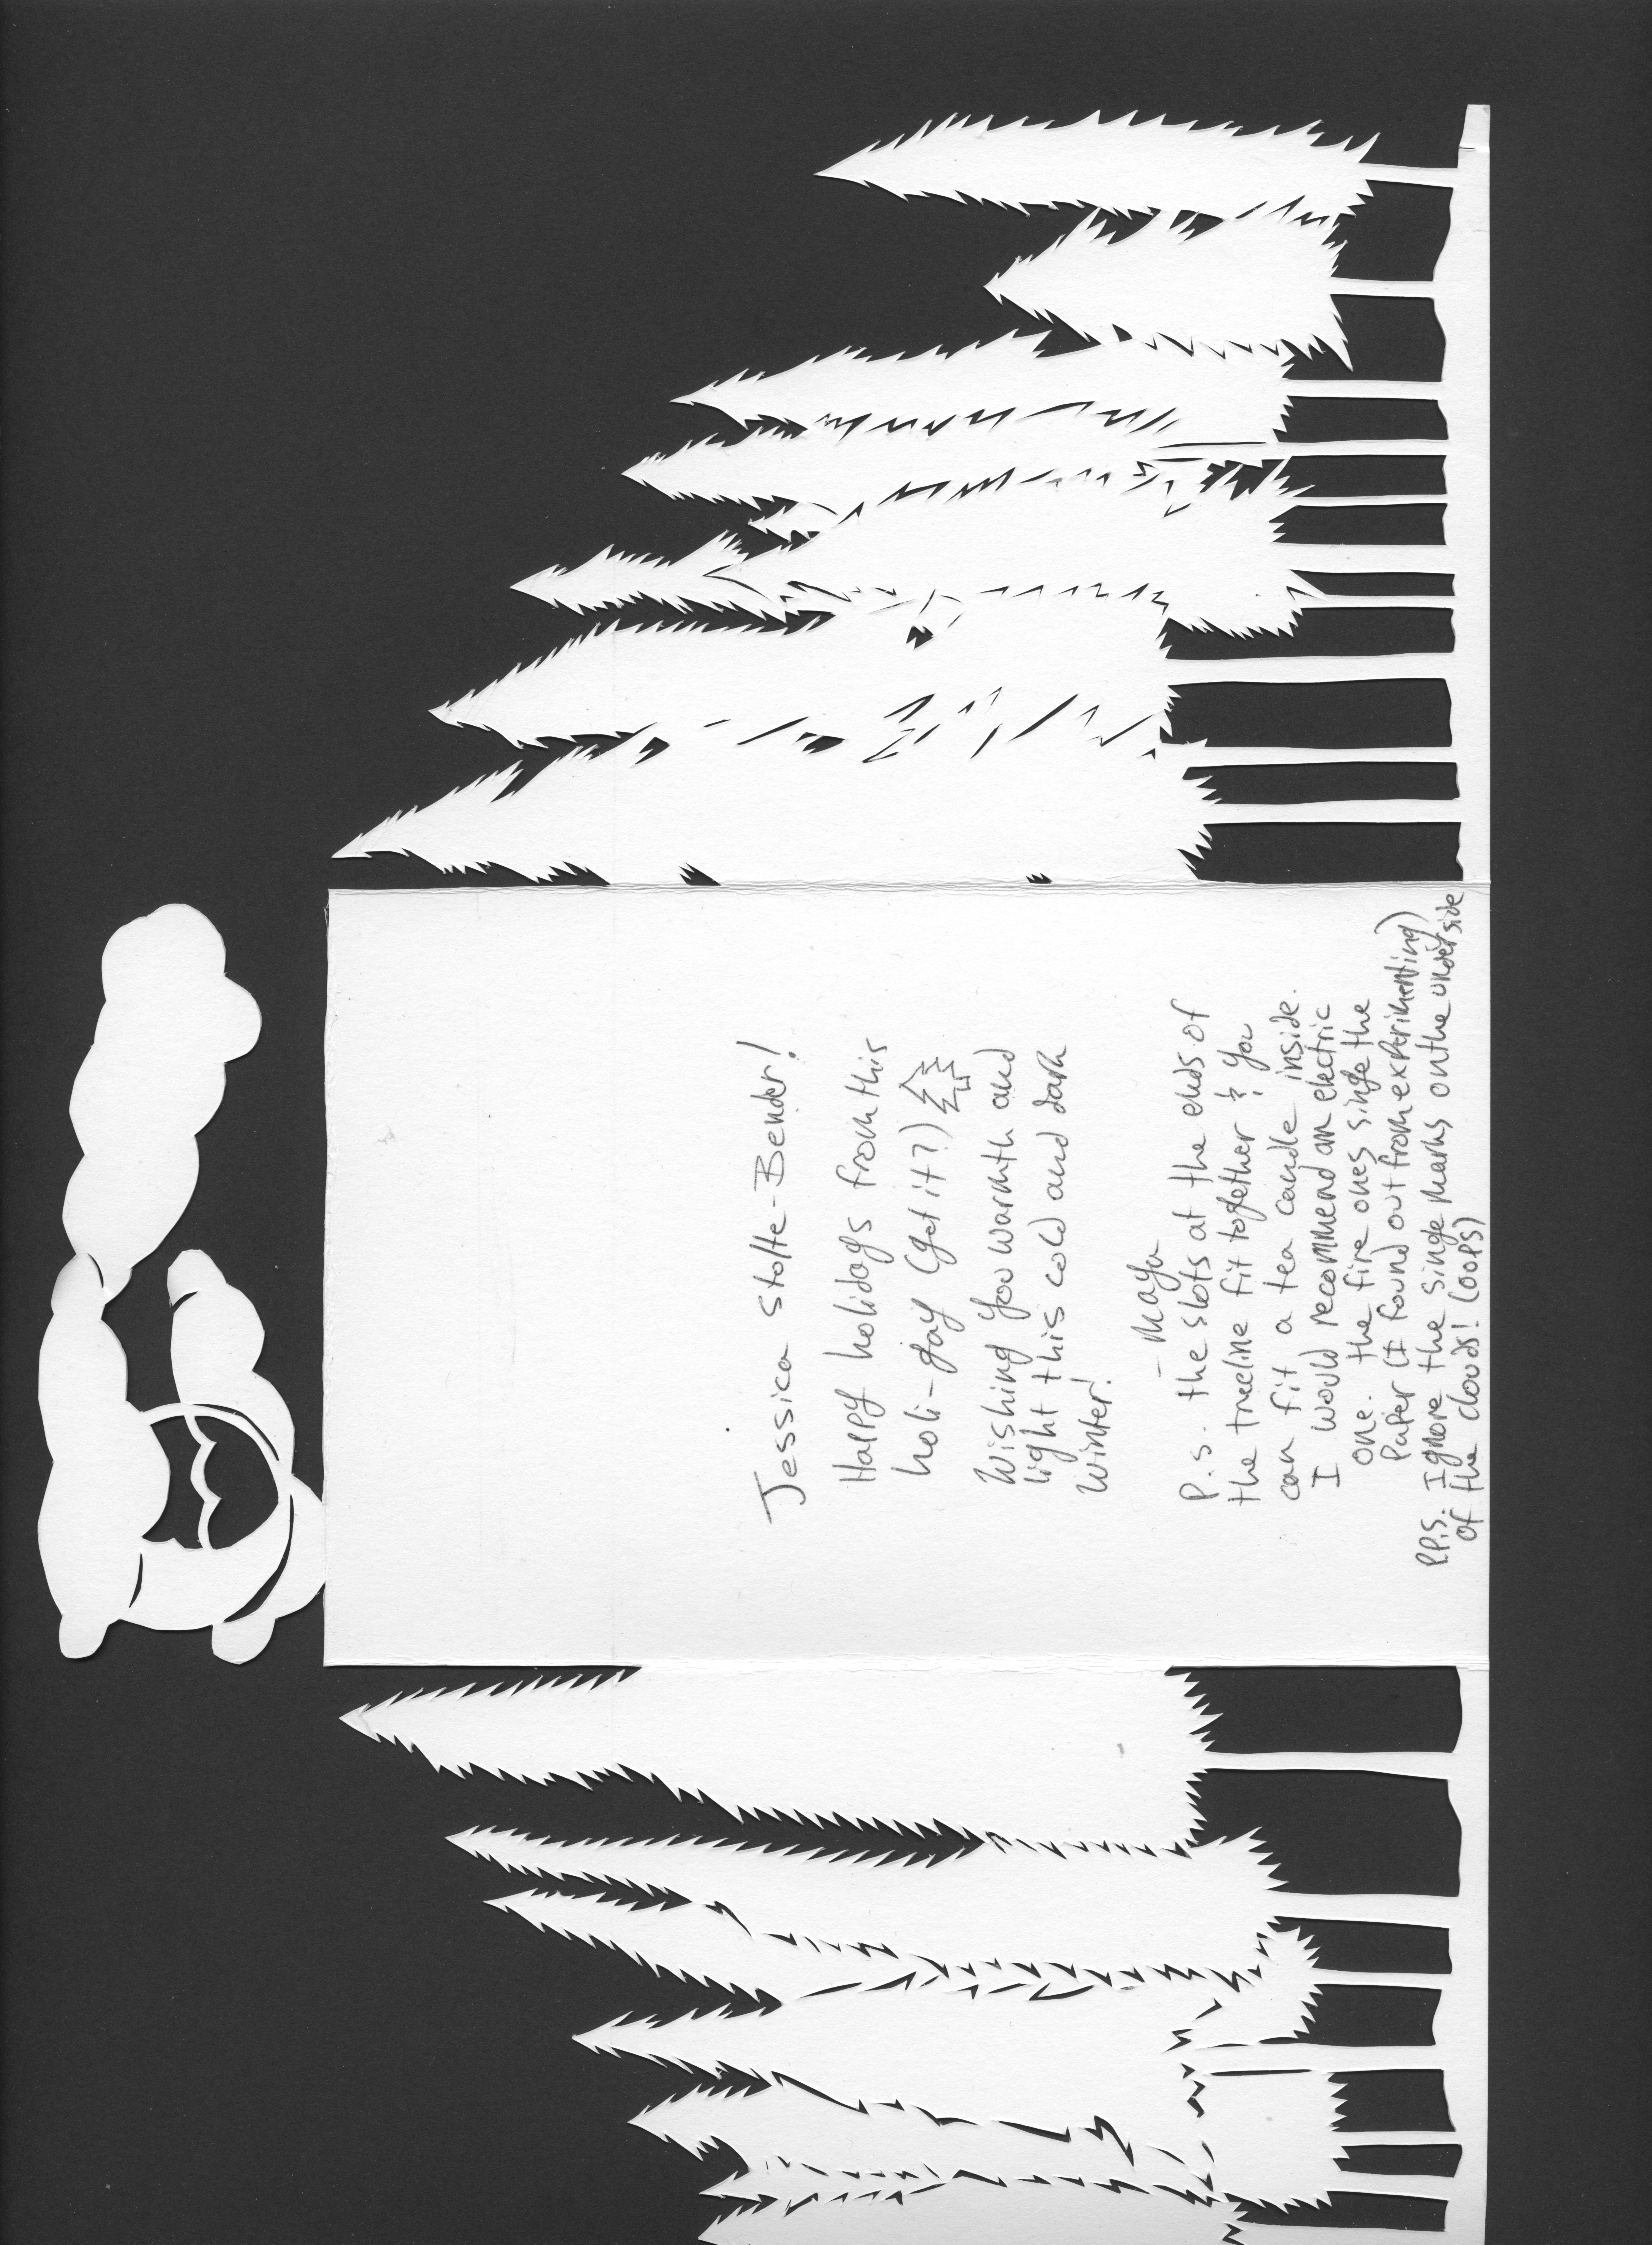 Jessica Stolte-Bender!
Happy holidays from this
holi-gay (get it?)
Wishing you warmth and
light this cold and dark
winter!
- Maya
P.S. the slots at the ends of
the treeline fit together & you
can fit a tea candle inside.
I would recommend an electric
one. the fire ones singe the
Paper (I found out from experimenting)
P.P.S. Ignore the singe marks on the underside
of the clouds! (oops)